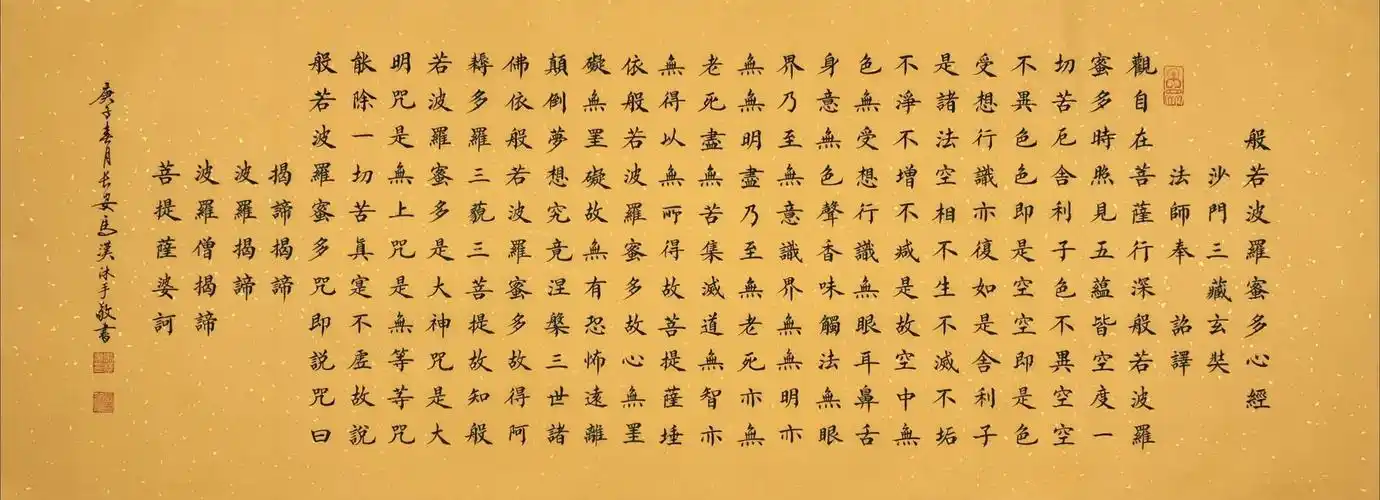 般若波羅蜜多心經
沙門三藏玄奘
法師奉 詔譯
觀自在菩薩行深般若波羅
蜜多時照見五蘊皆空度一
切苦厄舍利子色不異空空
不異色色即是空空即是色
受想行識亦復如是舍利子
是諸法空相不生不滅不垢
不淨不增不減是故空中無
色無受想行識無眼耳鼻舌
身意無色聲香味觸法無眼
界乃至無意識界無無明亦
無無明盡乃至無老死亦無
老死盡無苦集滅道無智亦
無得以無所得故菩提薩埵
依般若波羅蜜多故心無罣
礙無罣礙故無有恐怖遠離
顛倒夢想究竟涅槃三世諸
佛依般若波羅蜜多故得阿
耨多羅三藐三菩提故知般
若波羅蜜多是大神咒是大
明咒是無上咒是無等等咒
能除一切苦真寔不虛故說
般若波羅蜜多咒即說咒曰
揭諦揭諦
波羅揭諦
波羅僧揭諦
菩提薩婆訶
庚子春月長安馬漢沐手敬書